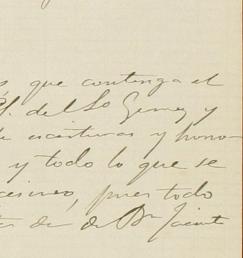 que contenga el
del Sr Gomez y
escrituras y hono
y todo lo que se
pues todo
de Dn Jacinto